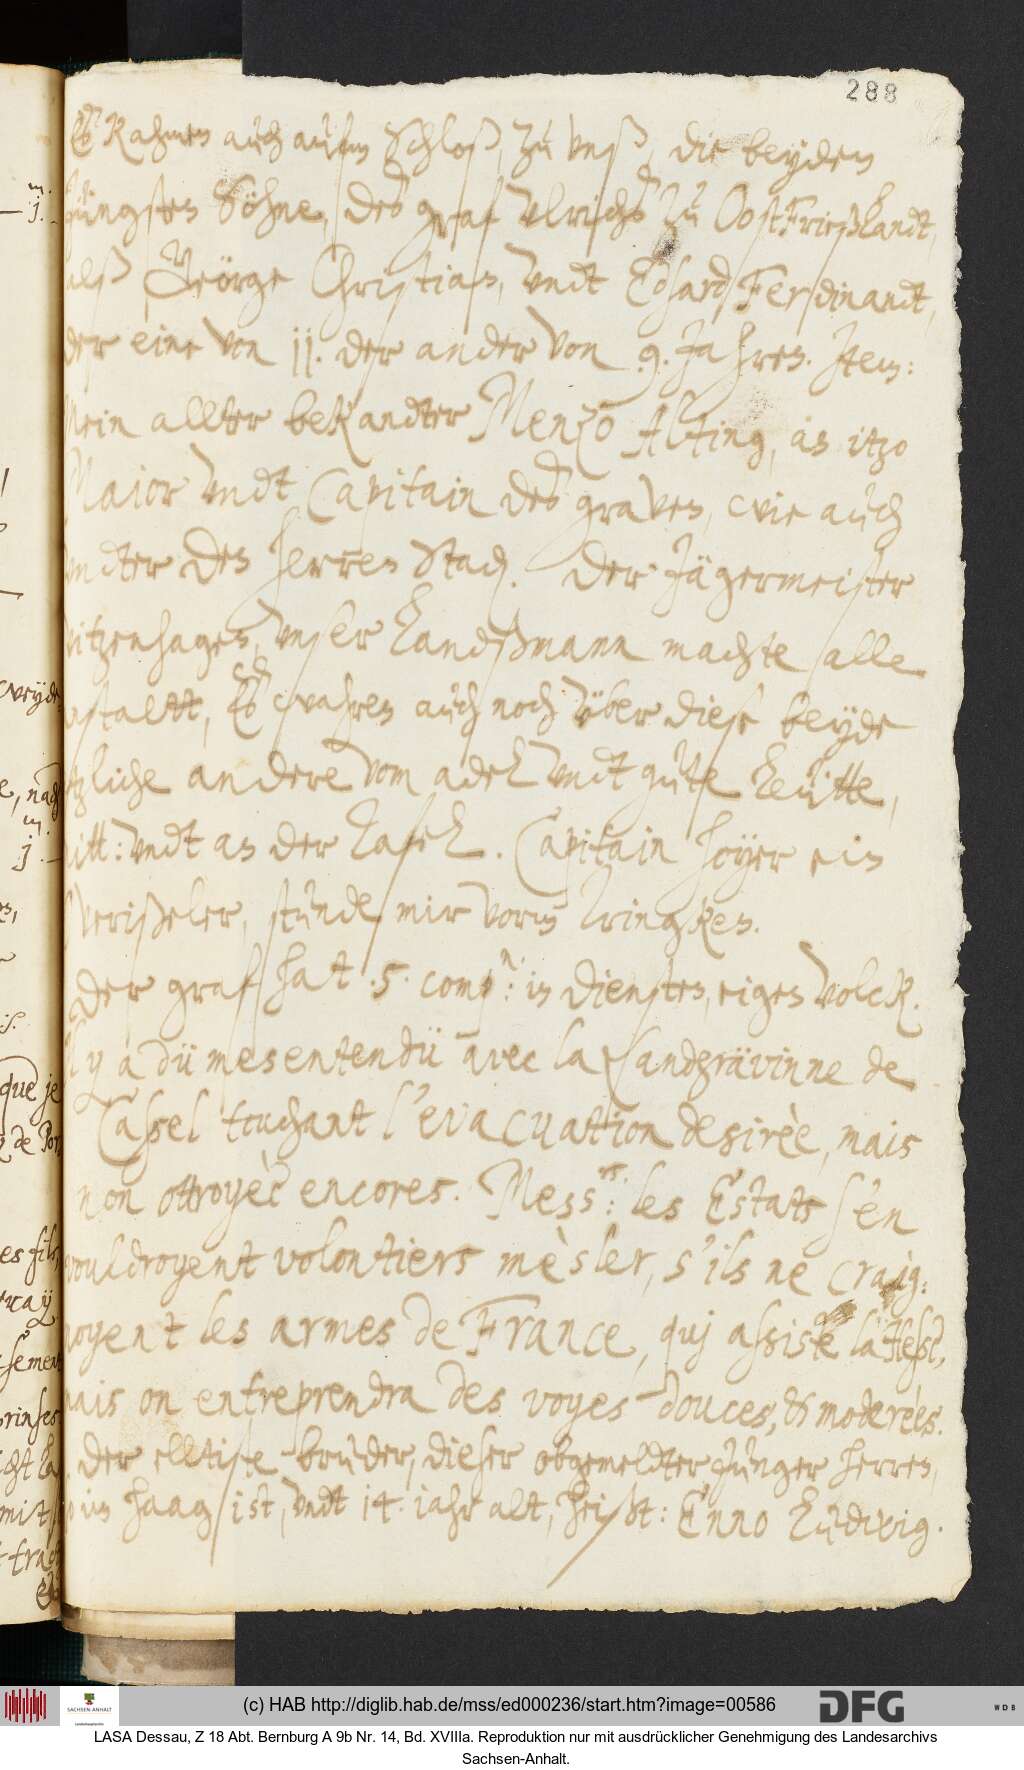 288
Es kahmen auch aufm Schloß, zu unß, die beyden
jüngsten Söhne, des graf Ulrichs zu OostFrießlandt,
alß Geörge Christian, vndt Edsard Ferdinandt,
der eine von 11. der ander von 9. Jahren. Jtem:
Mein allter bekandter Menzo Alting, an itzo
Maior vndt Capitain des graven, wie auch
vndter des herren Stad. Der Jägermeister
Witzenhagen, vnser Landßmann machte alle
anstaltt, Es wahren auch noch über diese beyde
etzliche andere vom adel vndt gute Leutte,
mitt: vndt an der Tafel. Capitain Hoyer ein
Overißeler, stunde mir vorm Trincken.
Der graf hat 5. comp.n: in diensten, eigen volck.
Il y a dü mesentendü avec la Landgrävinne de
Cassel touchant l'evacuation desirèe, mais
non ottroyèe encores. Mess:rs les Estats s'en
vouldroyent volontiers mèsler, s'ils ne craig:
noyent les armes de France, quj assiste la Hess:
mais on entreprendra des voyes douces, & moderèes.
Der elltiste bruder, dieser obgemeldter junger herren,
so im Haag ist, vndt 14. iahr alt, heißt: Enno Ludwig.
m.
j.
weyde
e, nach
m.
j.
que je
es fils,
mit
(c) HAB http://diglib.hab.de/mss/ed000236/start.htm?image=00586
SACHSEN-ANHALT
DFG
WDB
LASA Dessau, Z 18 Abt. Bernburg A 9b Nr. 14, Bd. XVIIIa. Reproduktion nur mit ausdrücklicher Genehmigung des Landesarchivs
Sachsen-Anhalt.